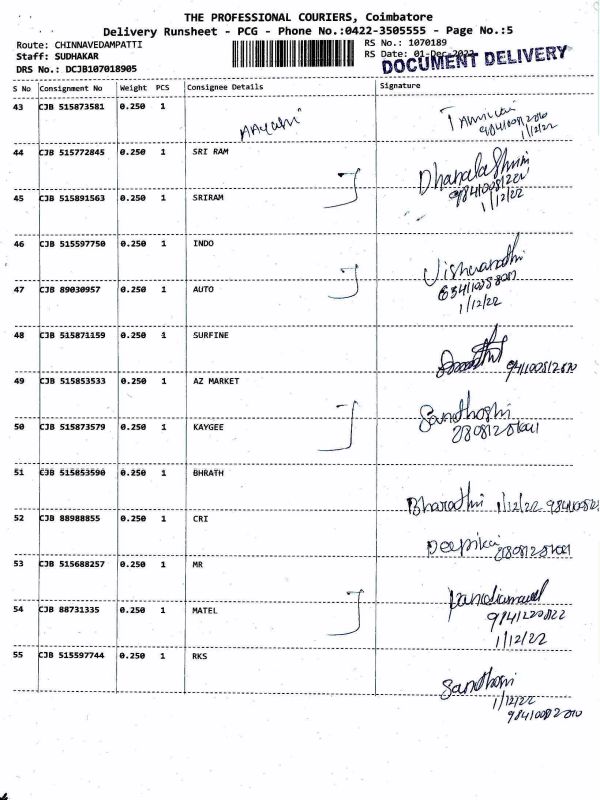 THE PROFESSIONAL COURIERS, Coimbatore
Delivery Runsheet - PCG - Phone No.:0422-3505555 - Page No.:5
Route: CHINNAVEDAMPATTI RS No.: 1070189
Staff: SUDHAKAR RS Date: 01-Dec-2022
DRS No.: DCJB107018905 DOCUMENT DELIVERY
S No Consignment No Weight PCS Consignee Details Signature
43 CJB 515873581 0.250 1
1/12/22
44 CJB 515772845 0.250 1 SRI RAM
1/12/22
45 CJB 515891563 0.250 1 SRIRAM
46 CJB 515597750 0.250 1 INDO
47 CJB 89030957 0.250 1 AUTO
1/12/22
48 CJB 515871159 0.250 1 SURFINE
49 CJB 515853533 0.250 1 AZ MARKET
Santhoshi
50 CJB 515873579 0.250 1 KAYGEE
51 CJB 515853590 0.250 1 BHRATH
Bharathi 1/12/22
52 CJB 88988855 0.250 1 CRI
Deepika
53 CJB 515688257 0.250 1 MR
54 CJB 88731335 0.250 1 MATEL
1/12/22
55 CJB 515597744 0.250 1 RKS
1/12/22